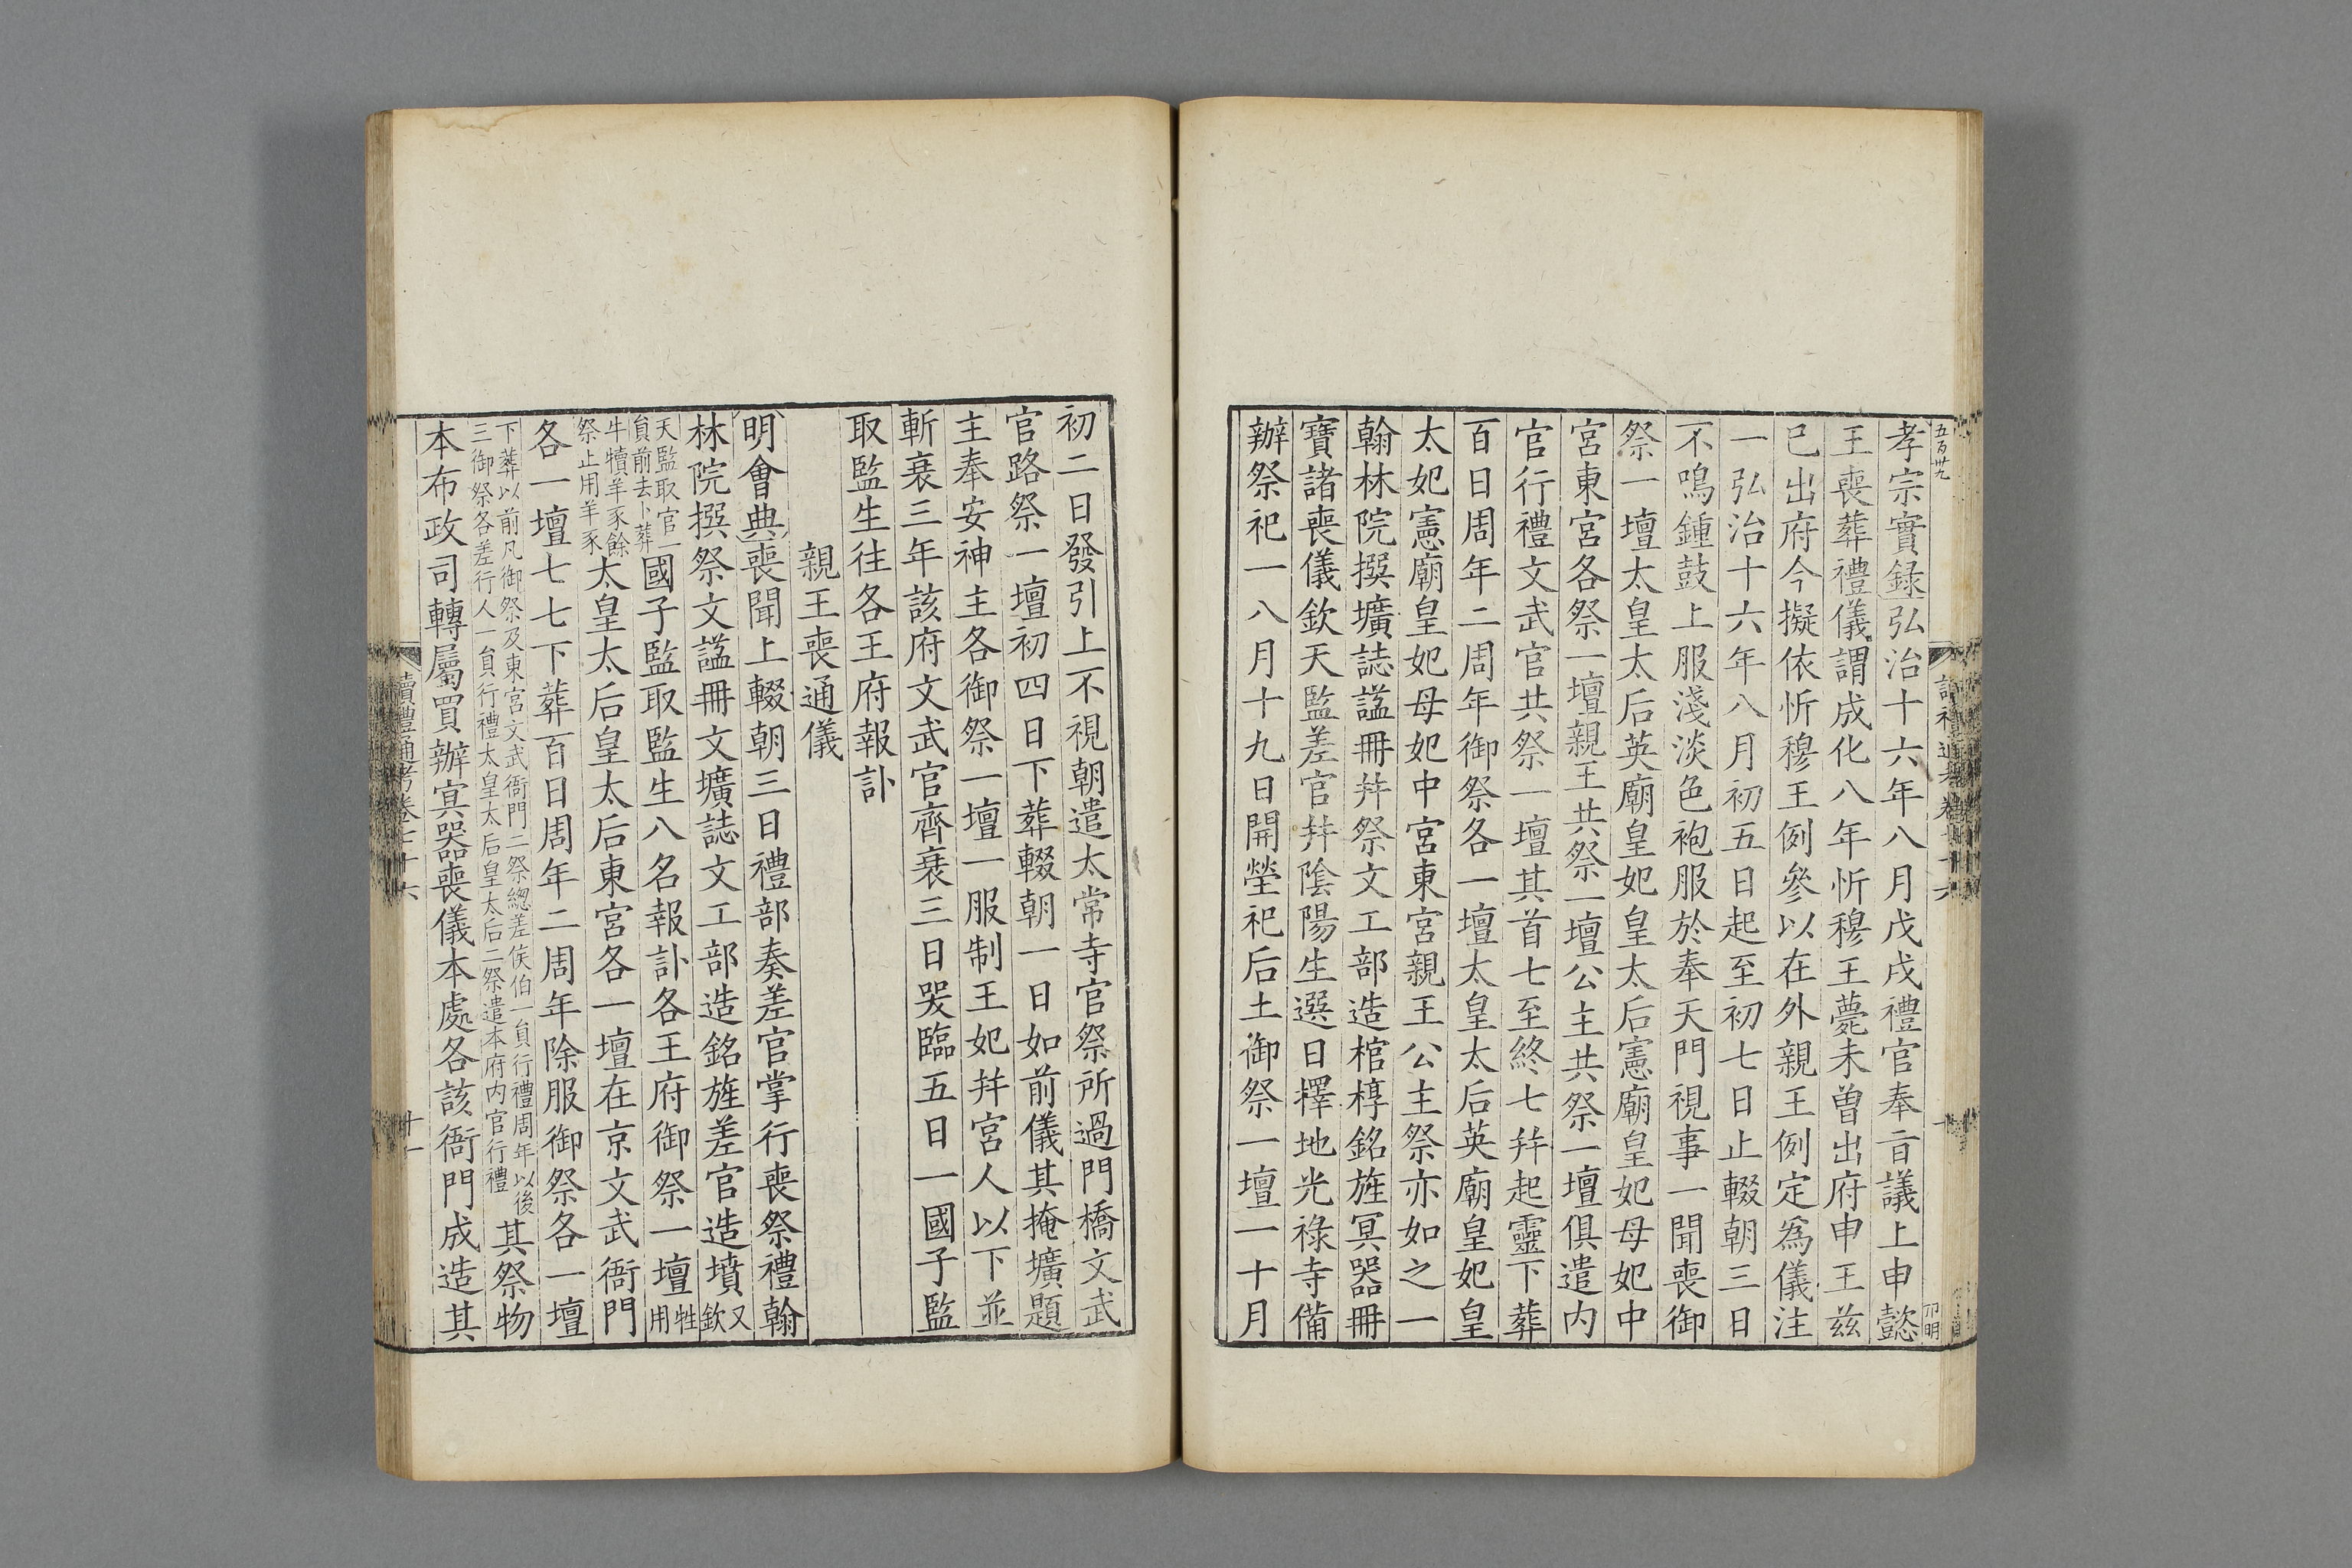 五百卅九
孝宗實録弘治十六年八月戊戌禮官奉旨議上申懿
王喪葬禮儀謂成化八年忻穆王薨未曾出府申王兹
已出府今擬依忻穆王例參以在外親王例定為儀注
一弘治十六年八月初五日起至初七日止輟朝三日
不鳴鍾鼓上服淺淡色袍服於奉天門視事一聞喪御
祭一壇太皇太后英廟皇妃皇太后憲廟皇妃母妃中
宮東宮各祭一壇親王共祭一壇公主共祭一壇俱遣内
官行禮文武官共祭一壇其首七至終七并起靈下葬
百日周年二周年御祭各一壇太皇太后英廟皇妃皇
太妃憲廟皇妃母妃中宮東宮親王公主祭亦如之一
翰林院撰壙誌謚冊并祭文工部造棺椁銘旌冥器冊
寶諸喪儀欽天監差官并陰陽生選日擇地光祿寺備
辦祭祀一八月十九日開塋祀后土御祭一壇一十月
初二日發引上不視朝遣太常寺官祭所過門橋文武
官路祭一壇初四日下葬輟朝一日如前儀其掩壙題
主奉安神主各御祭一壇一服制王妃并宮人以下並
斬衰三年該府文武官齊衰三日哭臨五日一國子監
取監生往各王府報訃
親王喪通儀
明會典喪聞上輟朝三日禮部奏差官掌行喪祭禮翰
林院撰祭文謚冊文壙誌文工部造銘旌差官造墳又欽
天監取官一貟前去卜葬國子監取監生八名報訃各王府御祭一壇牲用
牛犢羊豕餘祭止用羊豕太皇太后皇太后東宮各一壇在京文武衙門
各一壇七七下葬百日周年二周年除服御祭各一壇
下葬以前凡御祭及東宮文武衙門二祭總差侯伯一貟行禮周年以後三御祭各差行人一貟行禮太皇太后皇太后二祭遣本府内官行禮其祭物
本布政司轉屬買辦寘器喪儀本處各該衙門成造其
讀禮通考卷七十六
十一